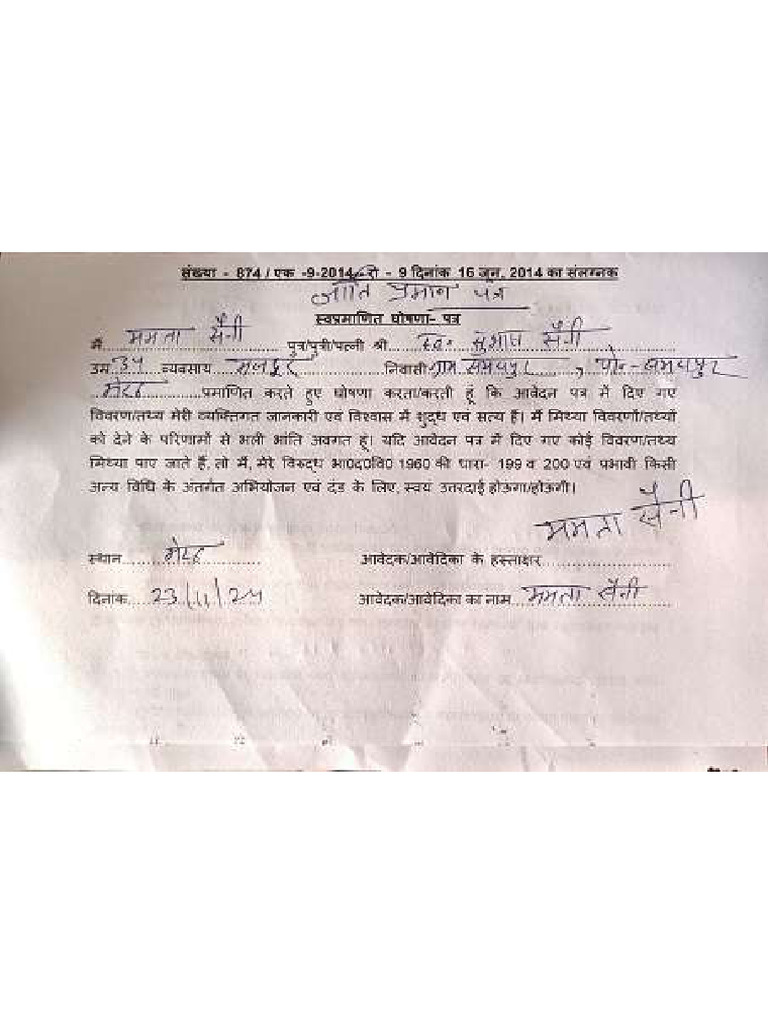 संख्या - 874 / एक -9-2014 - री - 9 दिनांक 16 जून, 2014 का संलग्नक
जाति प्रमाण पत्र
स्वप्रमाणित घोषणा- पत्र
मैं ममता सैनी पुत्र/पुत्री/पत्नी श्री स्व० सुभाष सैनी
उम्र व्यवसाय मजदूर निवासी ग्राम , पो०-
मेरठ प्रमाणित करते हुए घोषणा करता/करती हूं कि आवेदन पत्र में दिए गए
विवरण/तथ्य मेरी व्यक्तिगत जानकारी एवं विश्वास में शुद्ध एवं सत्य हैं। मैं मिथ्या विवरणों/तथ्यों
को देने के परिणामों से भली भांति अवगत हूं। यदि आवेदन पत्र में दिए गए कोई विवरण/तथ्य
मिथ्या पाए जाते हैं, तो मैं, मेरे विरुद्ध भा0द0वि0 1960 की धारा- 199 व 200 एवं प्रभावी किसी
अन्य विधि के अंतर्गत अभियोजन एवं दंड के लिए, स्वयं उत्तरदाई होऊंगा/होऊंगी।
ममता सैनी
स्थान मेरठ आवेदक/आवेदिका के हस्ताक्षर
दिनांक 23/11/24 आवेदक/आवेदिका का नाम ममता सैनी